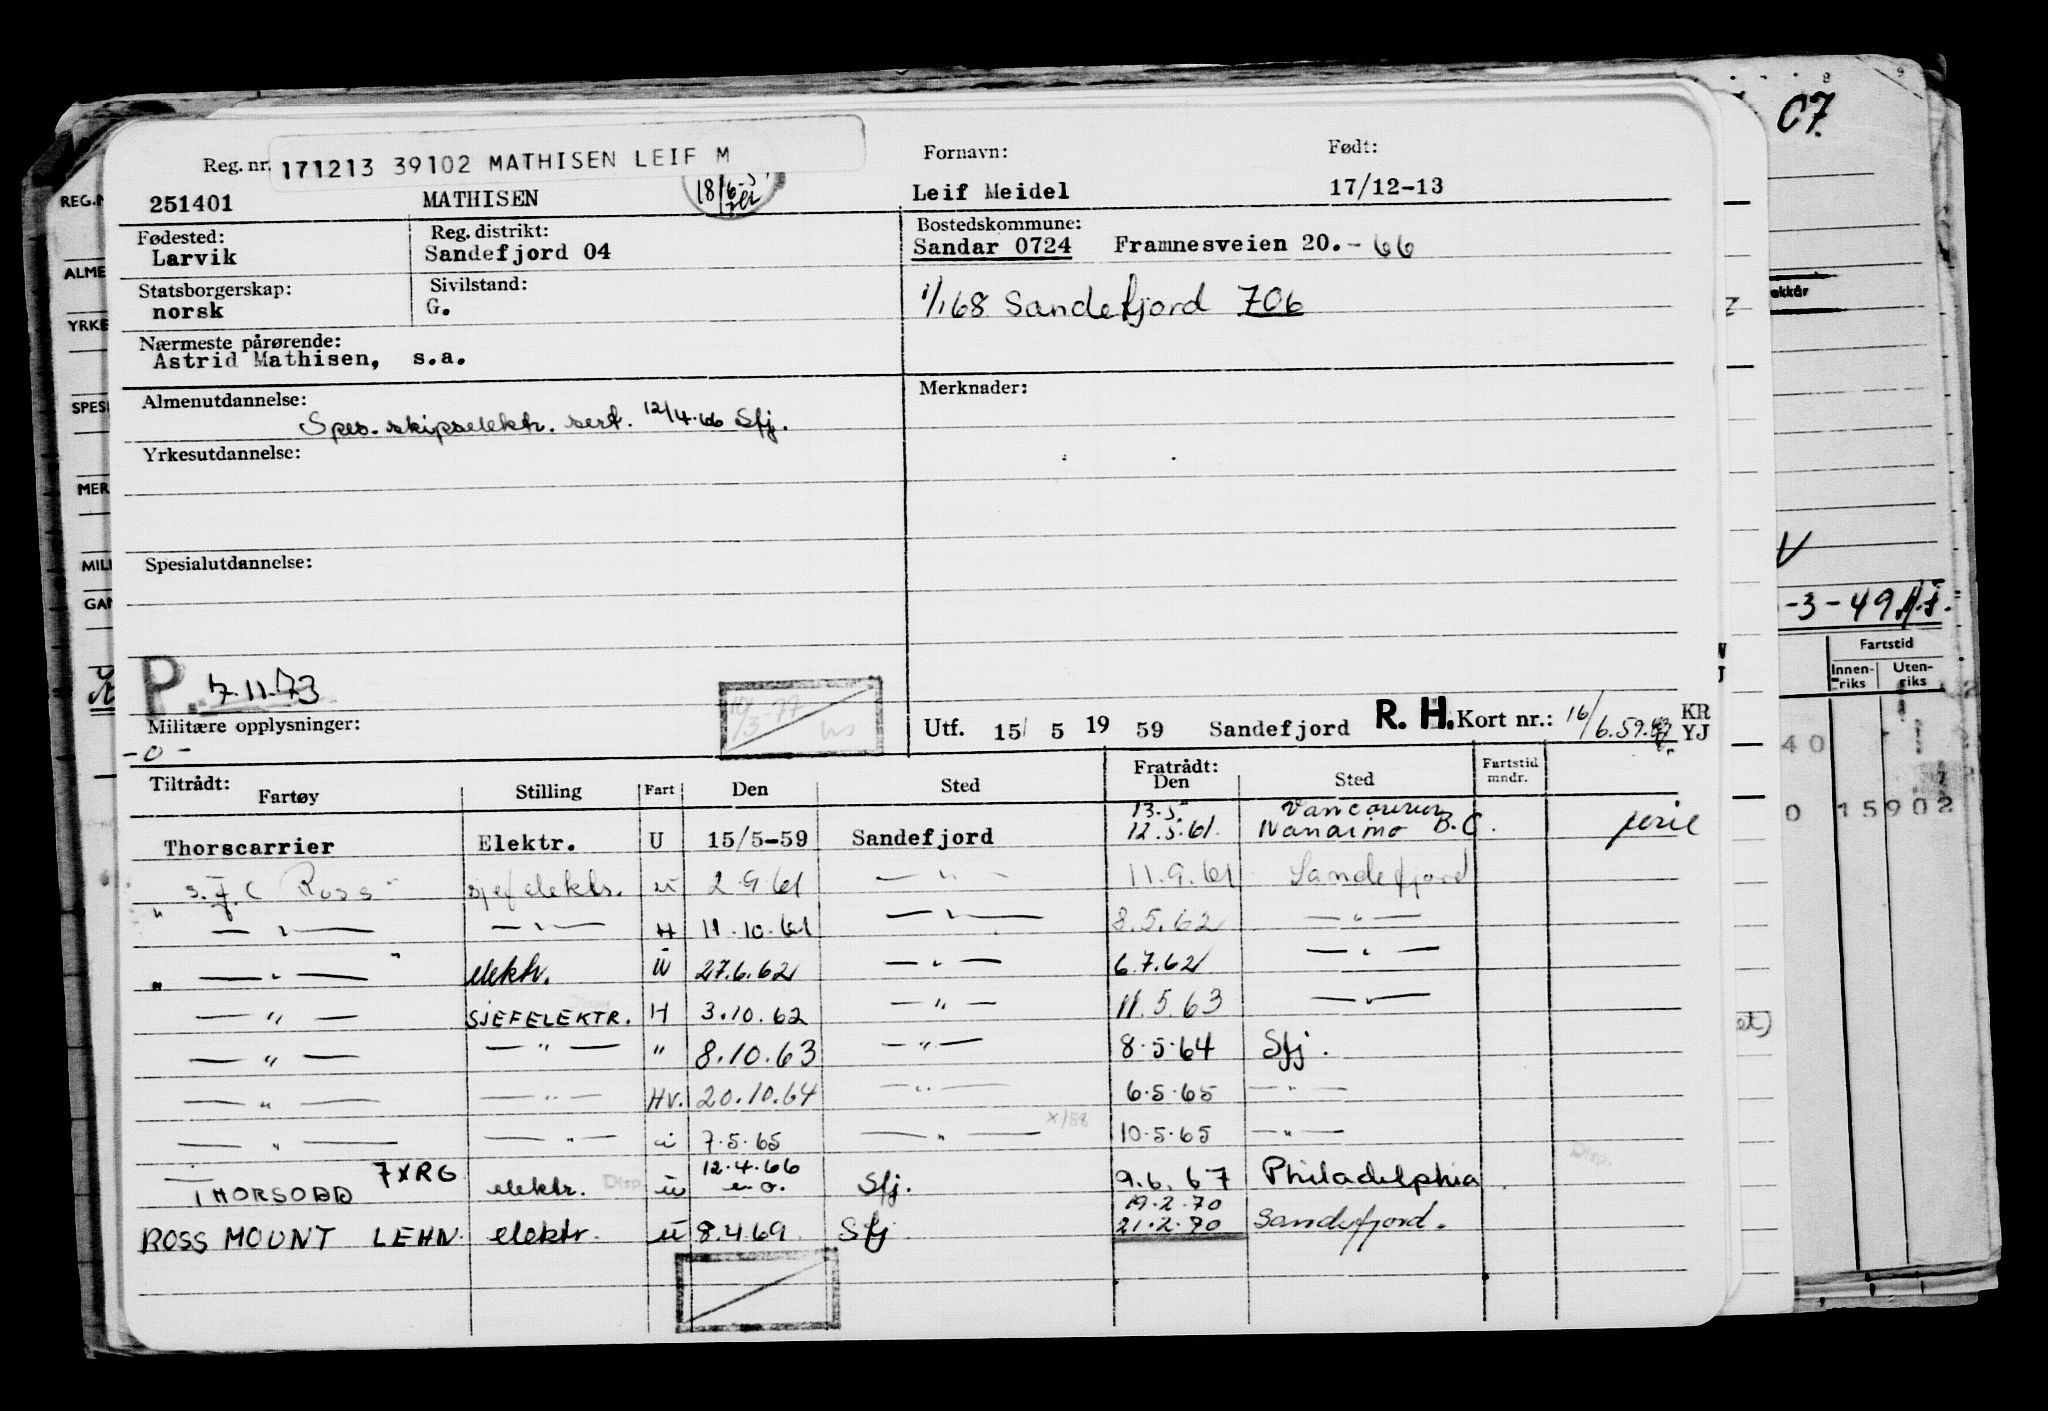 Reg. nr. 171213 39102 MATHISEN LEIF M Fornavn: Født:
251401 MATHISEN Leif Meidel 17/12-13
Fødested: Reg. distrikt: Bostedskommune:
Larvik Sandefjord 04 Sandar 0724 Framnesveien 20.- 66
Statsborgerskap: Sivilstand:
norsk G. 1/1 68 Sandefjord 706
Nærmeste pårørende:
Astrid Mathisen, s.a.
Almenutdannelse: Merknader:
Spes. skipselektr. sert. 12/4.66 Sfj.
Yrkesutdannelse:
Spesialutdannelse:
P. 7.11.73
Militære opplysninger: Utf. 15/ 5 19 59 Sandefjord R. H. Kort nr.: 16/6.59. KR YJ
-0-
Tiltrådt: Fratrådt: Fartstid mndr.
Fartøy Stilling Fart Den Sted Den Sted
13.5. Vancouver
Thorscarrier Elektr. U 15/5-59 Sandefjord 12.5.61. Nanaimo B.C. ferie
" s.f. C Ross" sjefelektr. u 2.9.61 — " — 11.9.61 Sandefjord
— " — — " — H 11.10.61 — " — 8.5.62 — " —
" — " — " elektr. U 27.6.62 — " — 6.7.62 — " —
— " — SJEFELEKTR. H 3.10.62 — " — 11.5.63 — " —
— " — — " — " 8.10.63 — " — 8.5.64 Sfj.
— " — — " — Hv. 20.10.64 — " — 6.5.65 — " —
— " — — " — u 7.5.65 — " — x/58 10.5.65 — " —
THORSODD 7XRG elektr. Disp. u 12.4.66 e.o. Sfj. 9.6.67 Philadelphia Disp.
19.2.70
ROSS MOUNT LEHN. elektr. u 8.4.69. Sfj 21.2.70 Sandefjord.
REG.N
ALME
YRKE
SPESI
MER
MILI
GAN
07.
ekkår
-3-49
Fartstid
Innen-riks Uten-riks
40
0 15902
et)